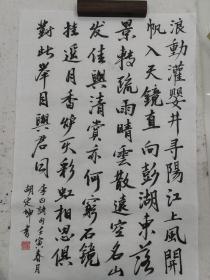 浪動灌嬰井尋陽江上風開
帆入天鏡直向彭湖東落
景轉疏雨晴雲散遠空名山
發佳興清賞亦何窮石鏡
挂遥月香炉灭彩虹相思俱
對此举目與君同 李白詩 壬寅春月
胡定坤書